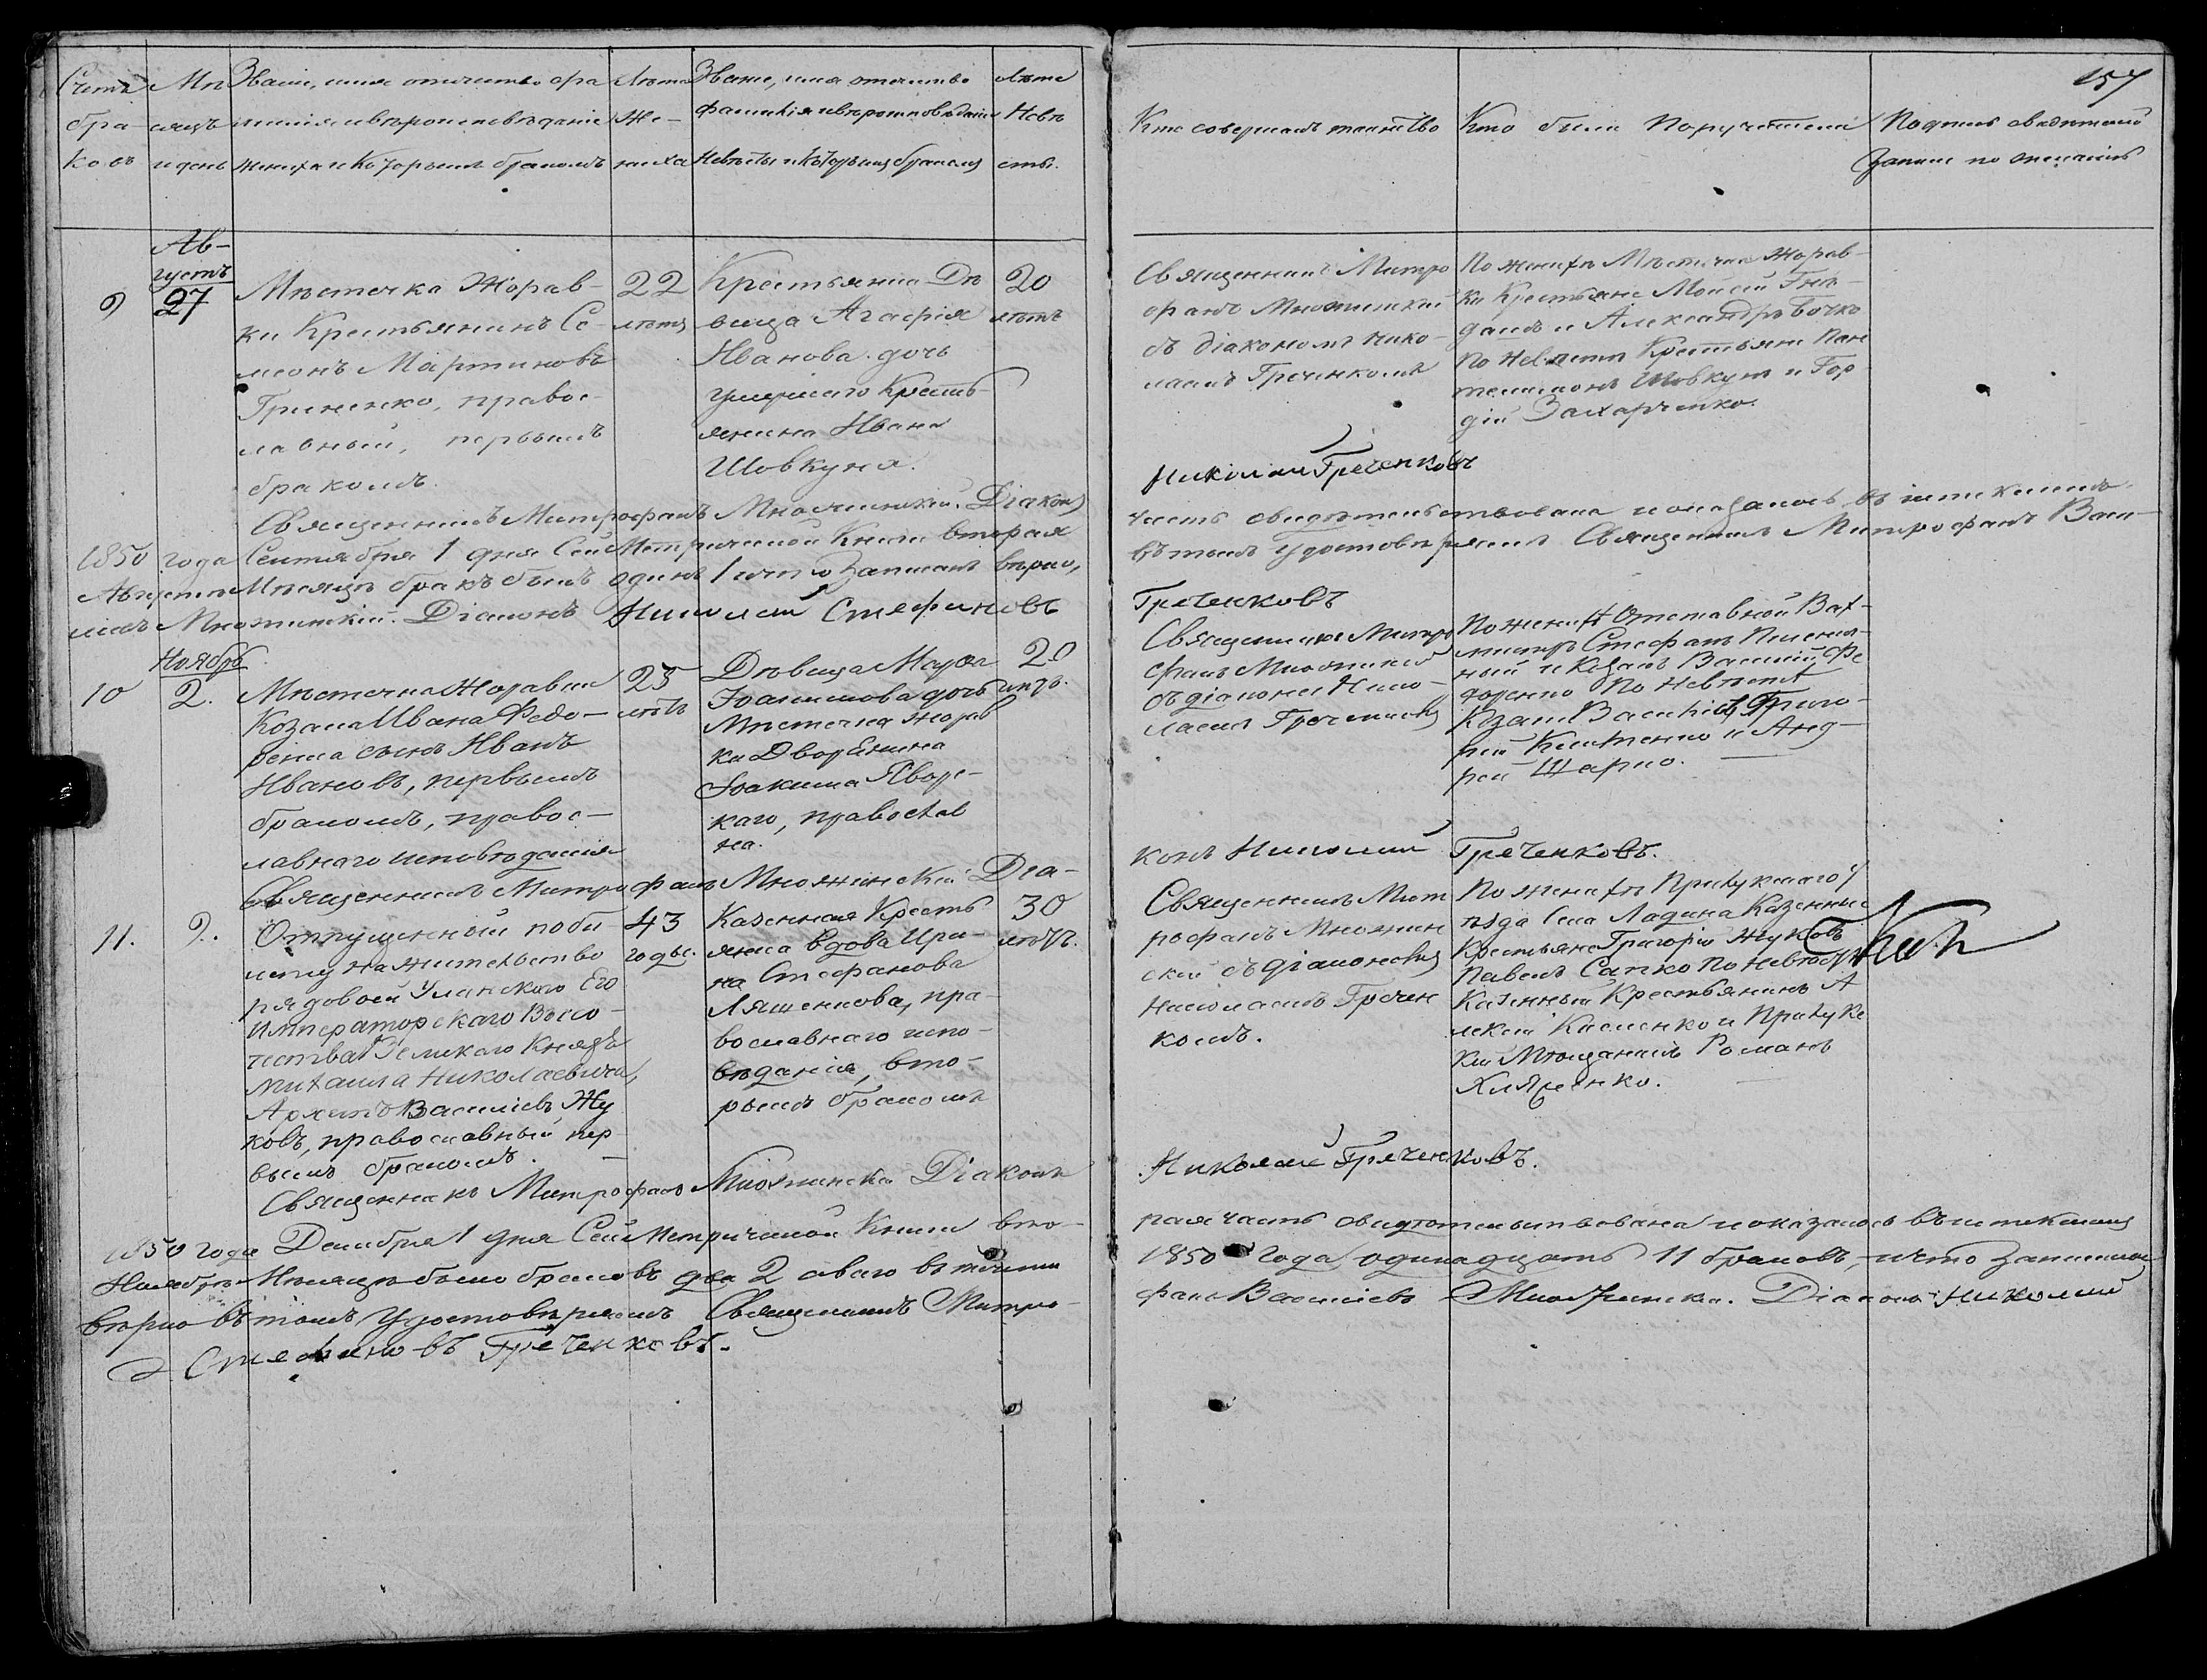 157
Счетъ бра-ковъ
Мѣ-сяцъ и день
Званіе, имя отчество фа-
милія и вѣроисповѣданіе
жениха и которымъ бракомъ
Лѣта
Же-
ниха
Званіе, имя отечество
фамилія и вѣроисповѣданіе
Невѣсты и которымъ бракомъ
Лѣта
Невѣ
сты.
Кто совершалъ таинство
Кто были Поручители
Подпись свидѣтелей
записи по желанію
9
Ав-
густъ
27
Мѣстечка Жорав-
ки Крестьянинъ Се-
меонъ Мартиновъ
Гриненко, правос-
лавный, первымъ
бракомъ.
22
лѣтъ
Крестьянка Дѣ
вица Агафія
Иванова дочь
умершаго Кресть-
янина Ивана
Шовкуна.
20
лѣтъ
Священникъ Митро
фанъ Множинскій
съ діакономъ Нико-
лаемъ Греченкомъ
По женихѣ Мѣстечка Жорав-
ки Крестьяне Моисей Гнѣ-
дашъ и Александръ Бочко
По Невѣстѣ Крестьяне Пан
телимонъ Шовкун и Гор
дій Захарченко.
Священникъ Митрофанъ Множинскій. Діаконъ
Николай Греченковъ
1850 года Сентября 1 дня Сей Метрической Книги вторая
часть свидѣтельствована и оказалось въ истекшемъ
Августѣ Мѣсяцѣ бракъ былъ одинъ 1 и что записанъ вѣрно,
въ томъ удостовѣряемъ Священникъ Митрофанъ Васи-
ліевъ Множинскій. Діаконъ Николай Стефановъ
Греченковъ
10
Ноябрь
2.
Мѣстечка Жоравки
Козака Ивана Федо-
ренка сынъ Иванъ
Ивановъ, первымъ
бракомъ, правос-
лавнаго исповѣданія
25
лѣтъ
Дѣвица Марѳа
Іоакимова дочь
Мѣстечка Жорав
ки Дворянина
Іоакима Явор-
каго, православ
на.
20
лѣтъ.
Священникъ Митро
фанъ Множинскій
съ діаконом Нико-
лаемъ Греченкомъ
По женихѣ Отставной Вах-
мистръ Стефанъ
ный и Козакъ Василій Фе
доренко По Невѣстѣ
Козаки Василій Григо-
рій Климченко и Анд-
рей Шарко.
Священникъ Митрофанъ Множинскій Діа-
конъ Николай Греченковъ.
11.
9.
Отпущенный по би-
лету на жительство
рядовой Уланскаго Его
Императорскаго Высо-
чества Великаго Князя
Михаила Николаевича,
Архипъ Василіевъ Жу
ковъ, православный пер-
вымъ бракомъ.
43
годы.
Казенная Кресть
янка вдова Ири-
на Стефанова
Ляшенкова, пра-
вославнаго испо-
вѣданія, вто-
рымъ бракомъ
30
лѣтъ.
Священникъ Мит
рофанъ Множин
скій съ діакономъ
Николаемъ Гречен
комъ.
По женихѣ Прилукскаго У
ѣзда Села Ладина Казенные
Крестьяне Григорій Жуковъ
Павелъ Сапко По Невѣстѣ
Казенный Крестьянинъ А
лексей Кисленко и Прилукс
кій Мѣщанинъ Романъ
Священникъ Митрофанъ Множинскій Діаконъ
Николай Греченковъ.
1850 года Декабря 1 дня Сей Метрической Книги вто-
рая часть свидѣтельствована и оказалось въ истекшемъ
Ноябрѣ Мѣсяцѣ было браковъ два 2 а всего въ теченіи
1850 года одинадцать 11 браковъ, и что записаны
вѣрно въ томъ удостовѣряемъ Священникъ Митро-
фанъ Василіевъ Множинскій. Діаконъ Николай
Стефановъ Греченковъ.